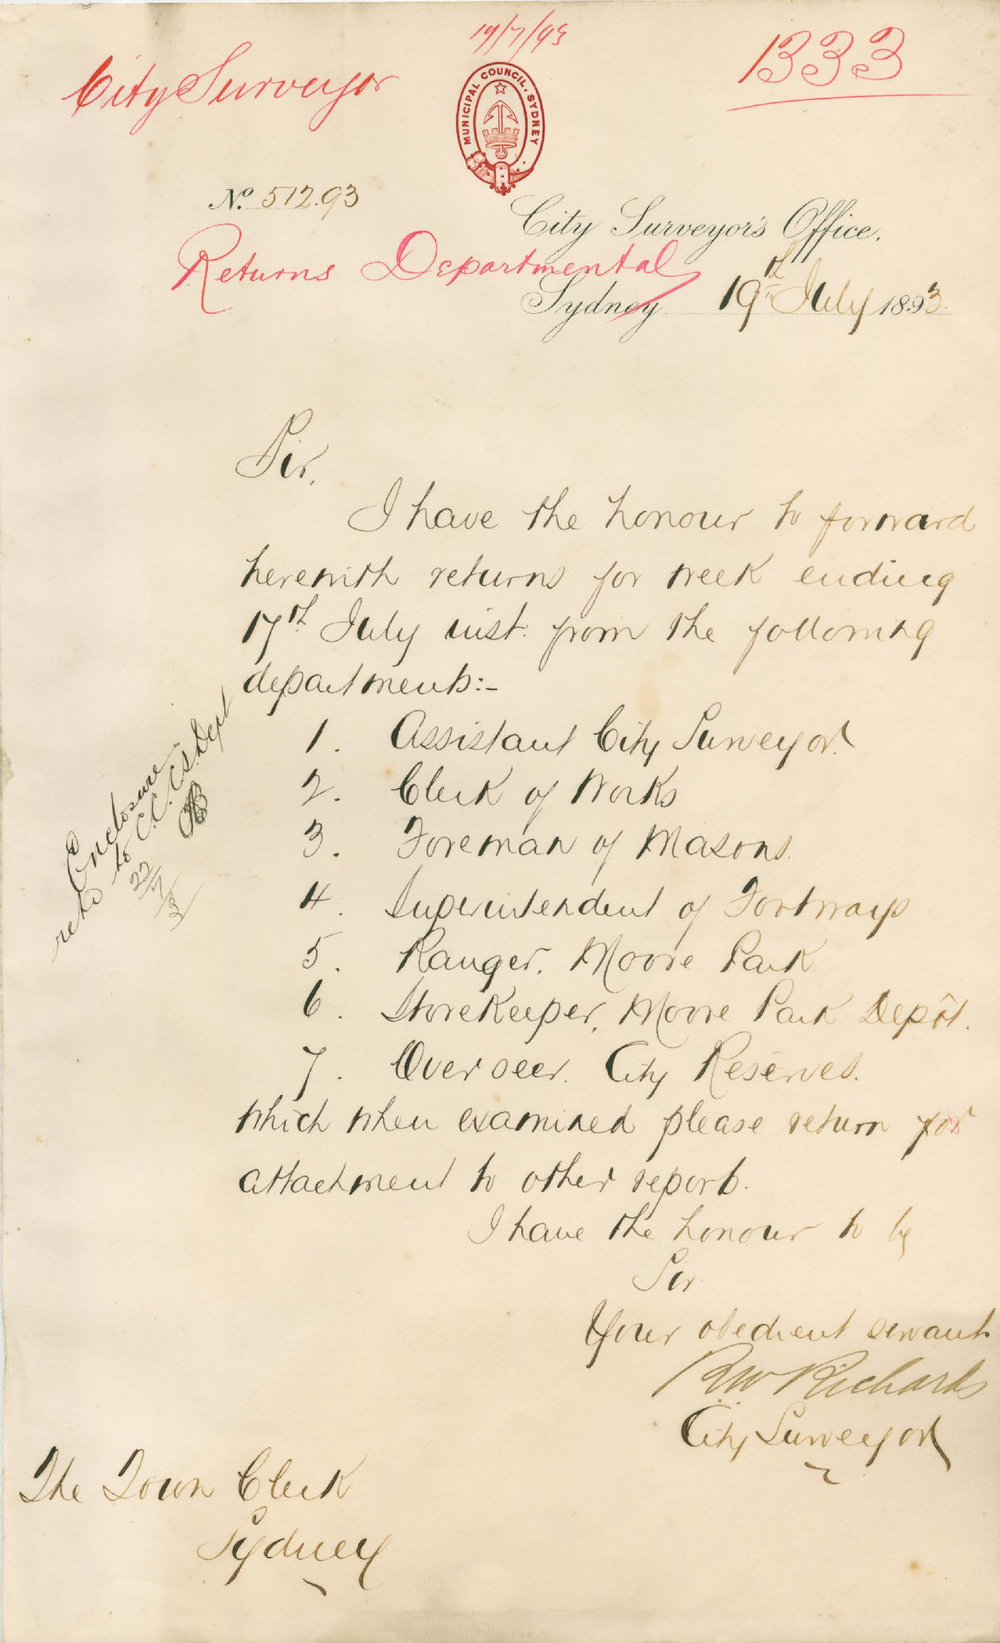 19/7/93
City Surveyor
1333
MUNICIPAL COUNCIL. SYDNEY
No. 512.93
City Surveyor's Office.
Returns Departmental
Sydney 19th July 1893
Sir,
I have the honour to forward
herewith returns for week ending
17th July inst. from the following
departments:-
1. Assistant City Surveyor.
2. Clerk of Works
3. Foreman of Masons.
4. Superintendent of Footways
5. Ranger, Moore Park
6. Storekeeper, Moore Park Depôt.
7. Overseer. City Reserves.
which when examined please return for
attachment to other reports.
I have the honour to be
Sir
Your obedient servant
RW Richards
City Surveyor
The Town Clerk
Sydney
Enclosure
retd to C.C. C.S. Dept